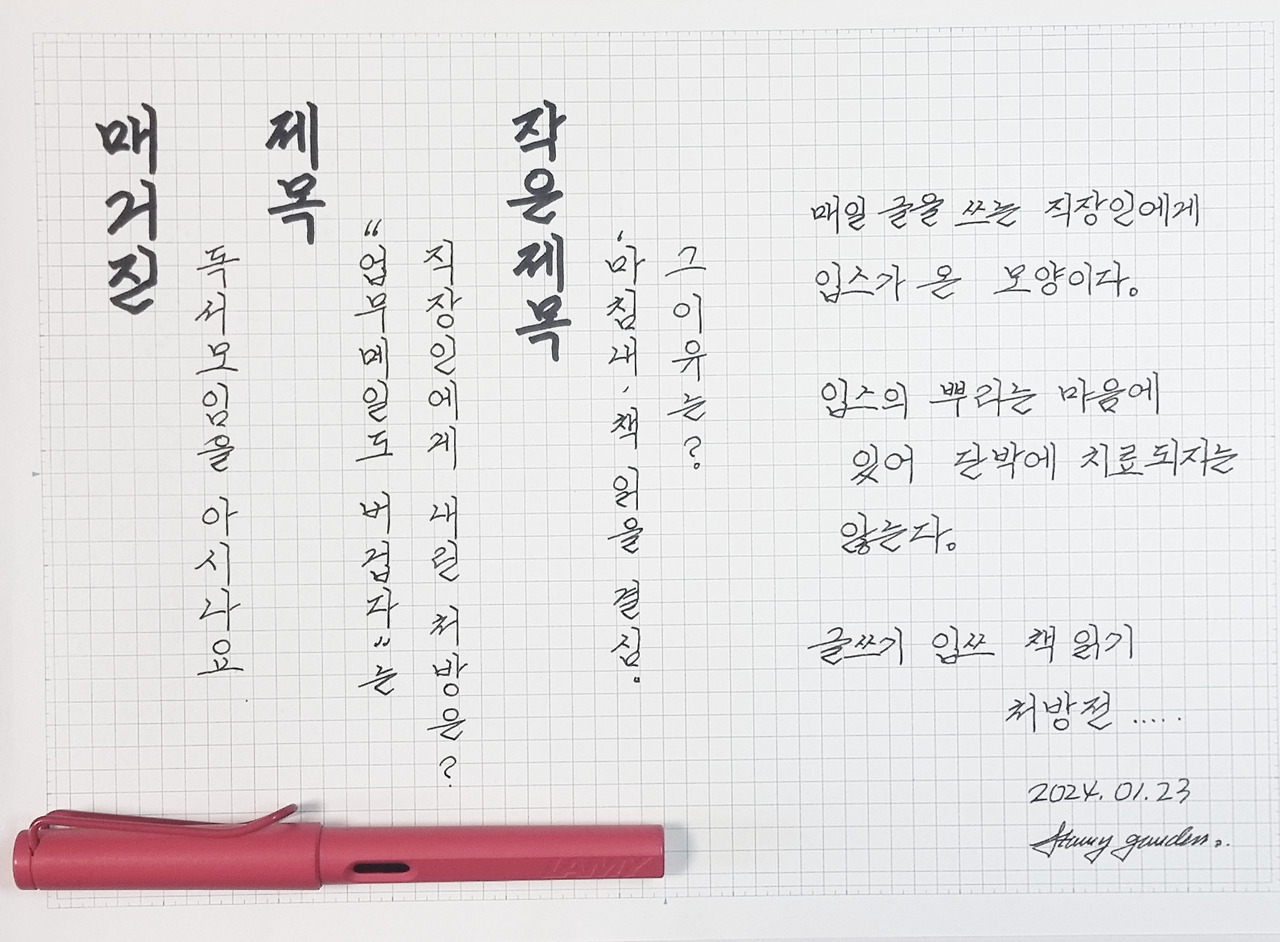 매거진
독서모임을 아시나요
제목
“업무메일도 버겁다”는
직장인에게 내린 처방은?
작은제목
‘마침내’책 읽을 결심.
그이유는?
매일 글을 쓰는 직장인에게
입스가 온 모양이다.
입스의 뿌리는 마음에
있어 단박에 치료되지는
않는다.
글쓰기 입쓰 책 읽기
처방전 .....
2024. 01. 23
LAMY